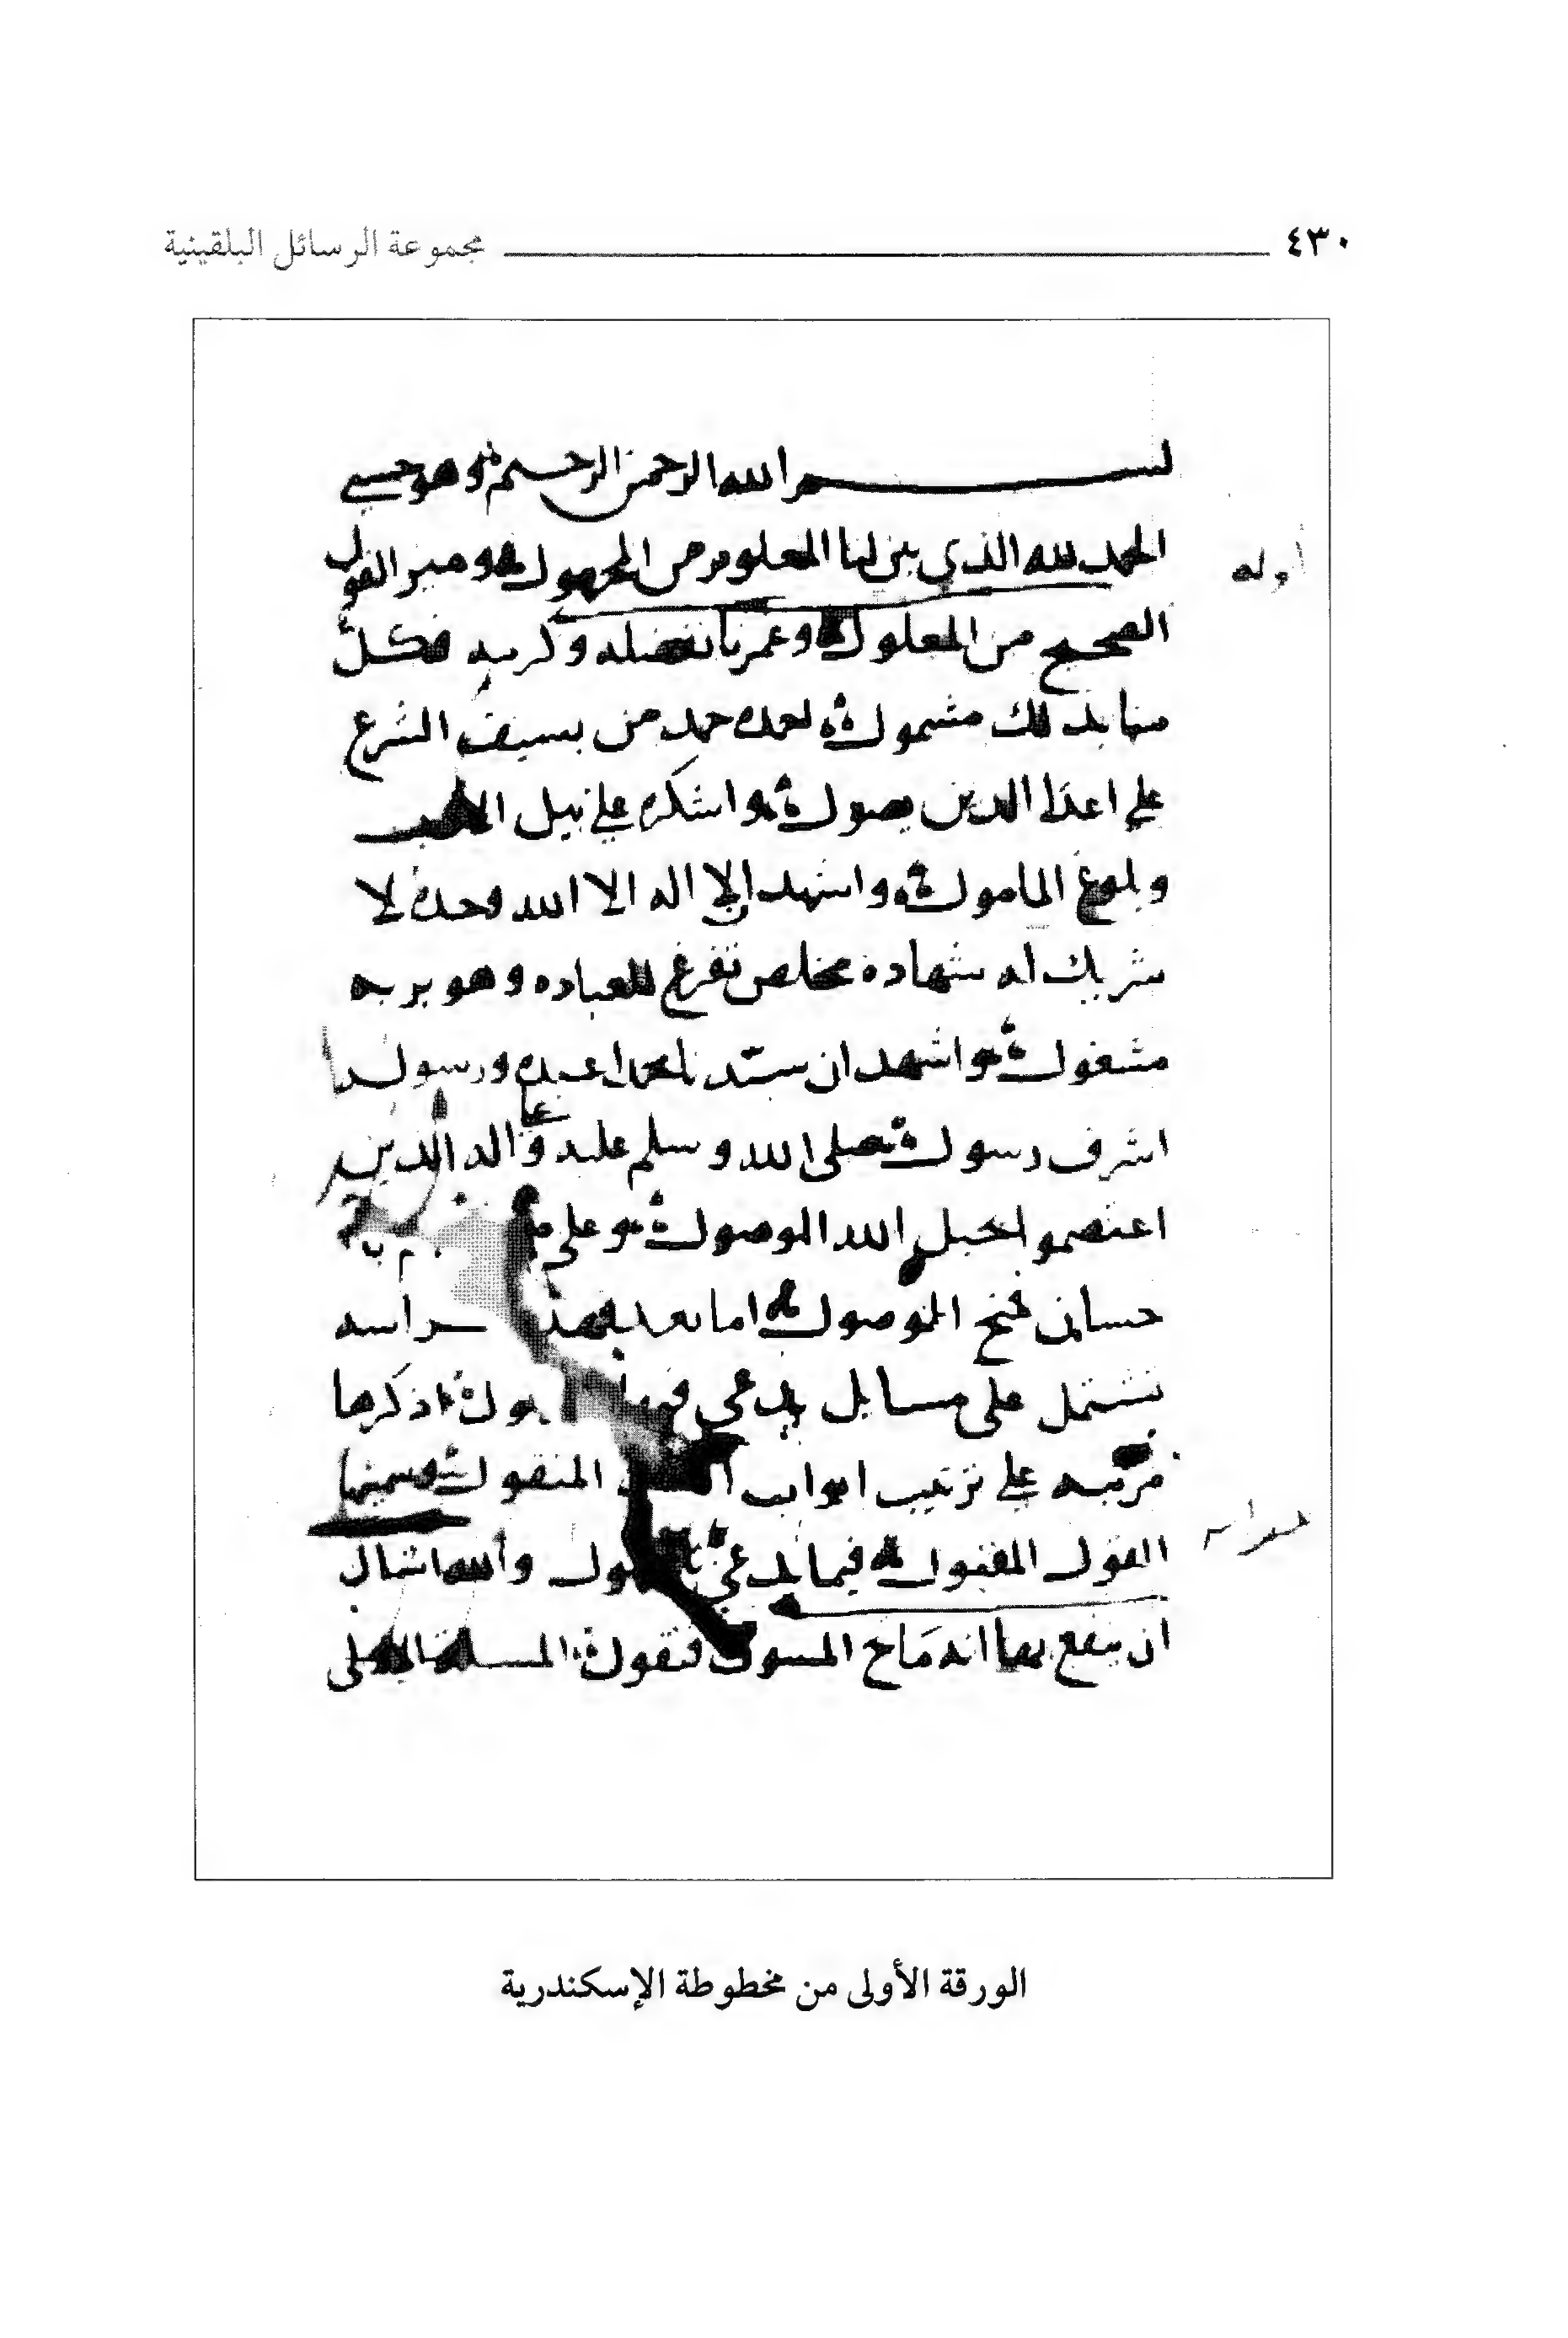 ٤٣٠ مجموعة الرسائل البلقينية
بسم الله الرحمن الرحيم وهو حسبي
الحمد لله الذي بين لنا المعلوم من المجهول وميز القول
أوله
الصحيح من المعلول وغمرنا بفضله وكرمه فكل
منا بذلك مشمول احمده حمد من بسيف الشرع
على اعدا الدين يصول واشكره على نيل
وبلوغ المامول واشهد ان لا اله الا الله وحده لا
شريك له شهادة مخلص تفرغ للعباده وهو بربه
مشغول واشهد ان سيدنا محمدا عبده ورسوله
اشرف رسول صلى الله وسلم عليه وعلى اله الذين
اعتصموا بحبل الله الموصول وعلى
حسان اما بعد فهذه
تشتمل على مسايل يدعى فيها اذكرها
مرتبه على ترتيب ابواب المنقول وسميتها
القول المقبول فيما يدعى والله اسال
ان ينفع بها انه مانح السول فنقول المسلة الاولى
الورقة الأولى من مخطوطة الإسكندرية